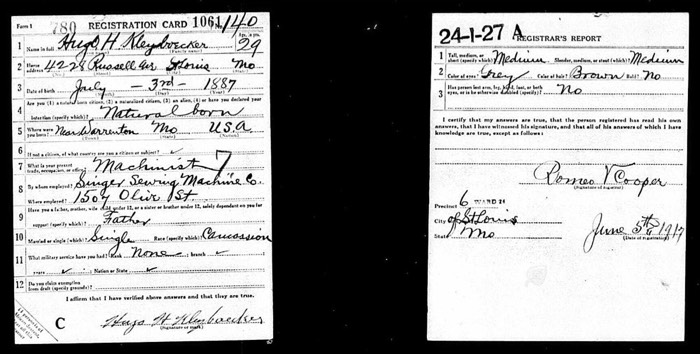 Form 1 780 REGISTRATION CARD 1061 No. 140
1 Name in full Hugo H. Kleyboecker Age, in yrs. 29
(Given name) (Family name)
2 Home address 4228 Russell Av St Louis Mo
(No.) (Street) (City) (State)
3 Date of birth July — 3rd — 1887
(Month) (Day) (Year)
4 Are you (1) a natural-born citizen, (2) a naturalized citizen, (3) an alien, (4) or have you declared your
intention (specify which)? Natural born
5 Where were you born? Near Warrenton Mo U.S.A.
(Town) (State) (Nation)
6 If not a citizen, of what country are you a citizen or subject? ✓
7 What is your present trade, occupation, or office? Machinist 7
8 By whom employed? Singer Sewing Machine Co.
Where employed? 1507 Olive St.
9 Have you a father, mother, wife, child under 12, or a sister or brother under 12, solely dependent on you for
support (specify which)? Father
10 Married or single (which)? Single Race (specify which)? Caucassion
11 What military service have you had? Rank None ; branch ✓
years ✓ ; Nation or State ✓
12 Do you claim exemption from draft (specify grounds)?
I affirm that I have verified above answers and that they are true.
C Hugo H Kleyboecker
(Signature or mark)
24-1-27 A REGISTRAR'S REPORT
1 Tall, medium, or short (specify which)? Medium Slender, medium, or stout (which)? Medium
2 Color of eyes? Grey Color of hair? Brown Bald? No
3 Has person lost arm, leg, hand, foot, or both eyes, or is he otherwise disabled (specify)? No
I certify that my answers are true, that the person registered has read his own
answers, that I have witnessed his signature, and that all of his answers of which I have
knowledge are true, except as follows:
Romeo V Cooper
(Signature of registrar)
Precinct 6 WARD 24
City of St Louis
State Mo
June 5th 1917
(Date of registration)